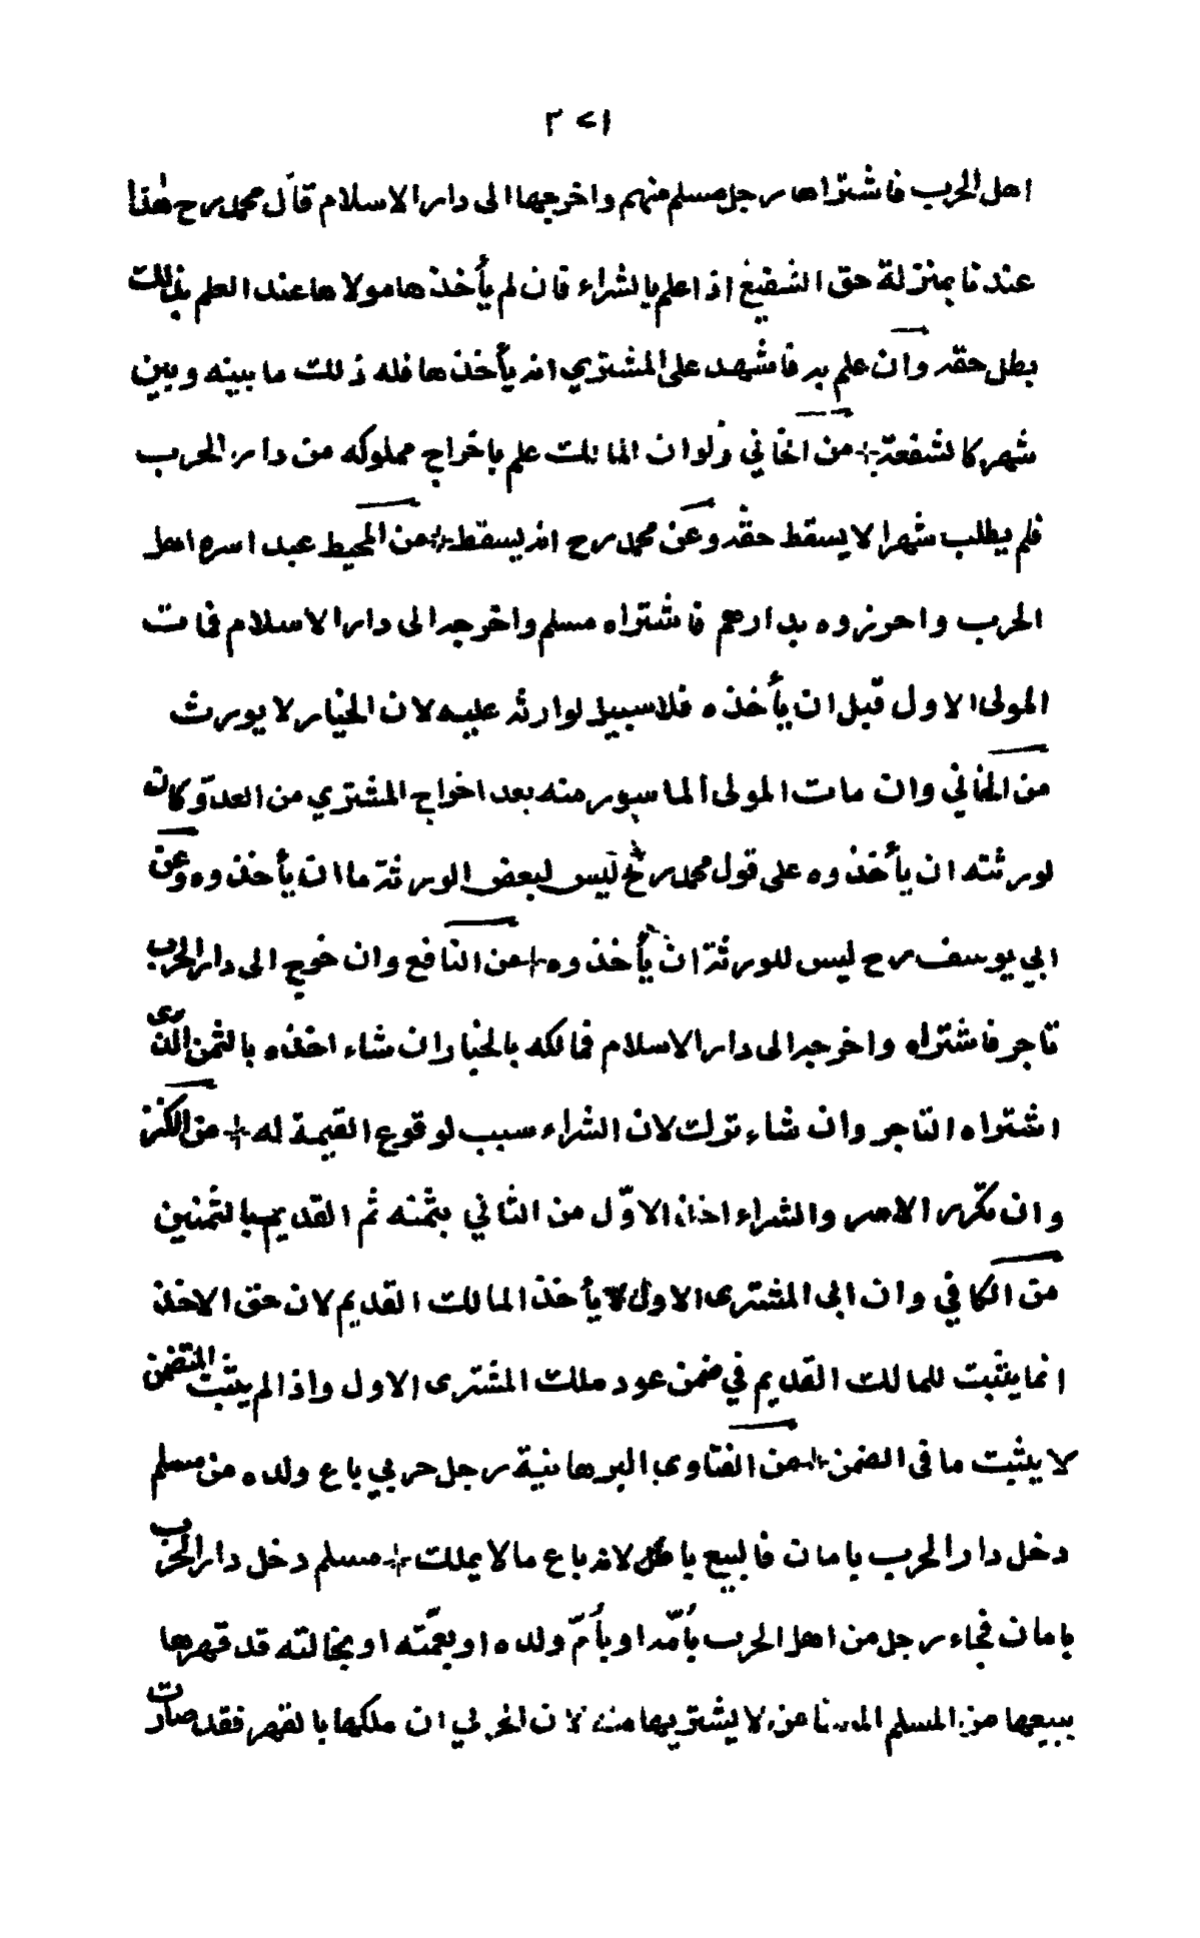 ٣٧١
اهل الحرب فاشتراها رجل مسلم منهم واخرجها الى دار الاسلام قال محمد رح هذا
عندنا بمنزلة حق الشفيع اذا علم بالشراء فان لم يأخذها مولاها عند العلم بذلك
بطل حقه وان علم به فاشهد على المشتري انه يأخذها فله ذلك ما بينه وبين
شهر كالشفعة من الخاني ولو ان المالك علم باخراج مملوكه من دار الحرب
فلم يطلب شهرا لا يسقط حقه وعن محمد رح انه يسقط من المحيط عبد اسره اهل
الحرب واحرزوه بدارهم فاشتراه مسلم واخرجه الى دار الاسلام فمات
المولى الاول قبل ان يأخذه فلا سبيل لوارثه عليه لان الخيار لا يورث
من الخاني وان مات المولى الماسور منه بعد اخراج المشتري من العدو كان
لورثته ان يأخذوه على قول محمد رح ليس لبعض الورثة ما ان يأخذوه وعن
ابي يوسف رح ليس للورثة ان يأخذوه من النافع وان خرج الى دار الحرب
تاجر فاشتراه واخرجه الى دار الاسلام فمالكه بالخيار ان شاء اخذه بالثمن الذى
اشتراه التاجر وان شاء ترك لان الشراء سبب لوقوع القيمة له من الكنز
وان تكرر الاسر والشراء اخذ الاول من الثاني بثمنه ثم القديم بالثمنين
من الكافي وان ابى المشترى الاول لا يأخذ المالك القديم لان حق الاخذ
انما يثبت للمالك القديم في ضمن عود ملك المشترى الاول واذا لم يثبت المتضمن
لا يثبت ما فى الضمن من الفتاوى البرهانية رجل حربي باع ولده من مسلم
دخل دار الحرب بامان فالبيع باطل لانه باع ما لا يملك مسلم دخل دار الحرب
بامان فجاء رجل من اهل الحرب بأمه او بأم ولده او بعمته او بخالته قد قهرها
يبيعها من المسلم لا يشتريها منه لان الحربي ان ملكها بالقهر فقد صارت